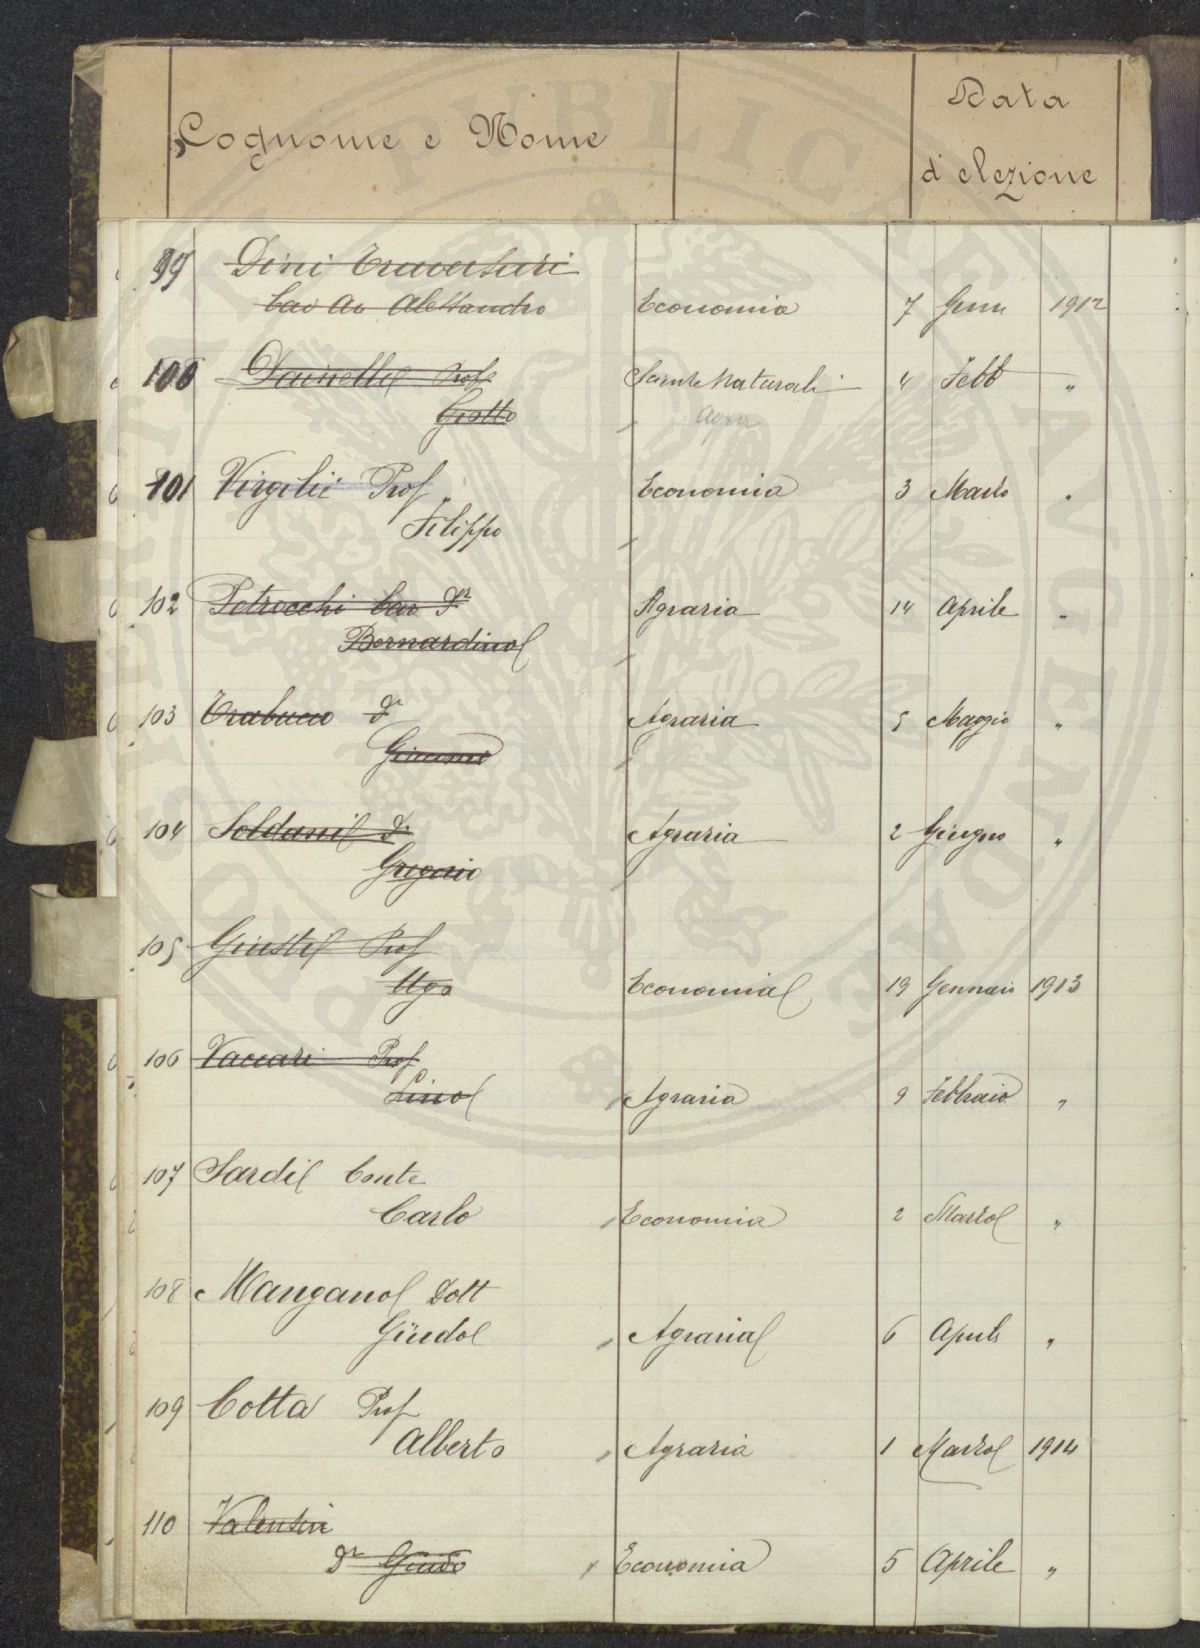 Cognome e Nome
Data
d'elezione
99 Dini Traversari
Cav Av Alessandro Economia 7 Genn 1912
100 Dainelli Prof Scienze Naturali 4 Febb "
Giotto Agra
101 Virgilii Prof Economia 3 Marzo "
Filippo
102 Petrocchi Cav Dr Agraria 14 Aprile "
Bernardino
103 Trabucco Dr Agraria 5 Maggio "
Giacomo
104 Soldani Dr Agraria 2 Giugno "
Gregorio
105 Giusti Prof
Ugo Economia 19 Gennaio 1913
106 Vaccari Prof
Lino Agraria 9 Febbraio "
107 Sardi Conte
Carlo Economia 2 Marzo "
108 Mangano Dott
Guido Agraria 6 Aprile "
109 Cotta Prof
Alberto Agraria 1 Marzo 1914
110 Valentini
Dr Guido Economia 5 Aprile "